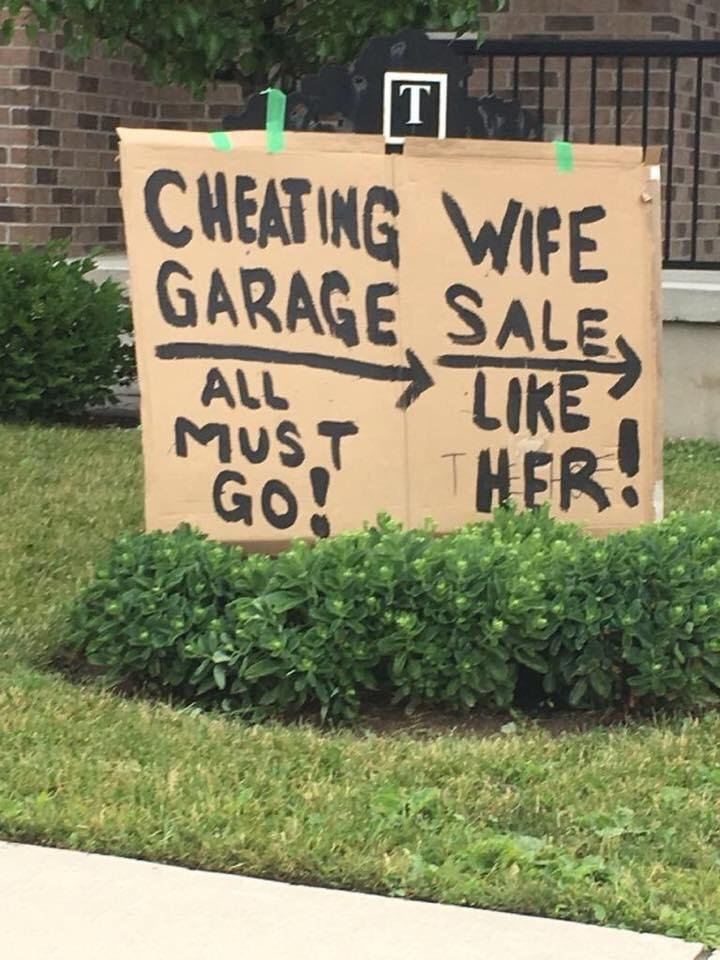 T
CHEATING WIFE
GARAGE SALE
ALL MUST GO!
LIKE HER!